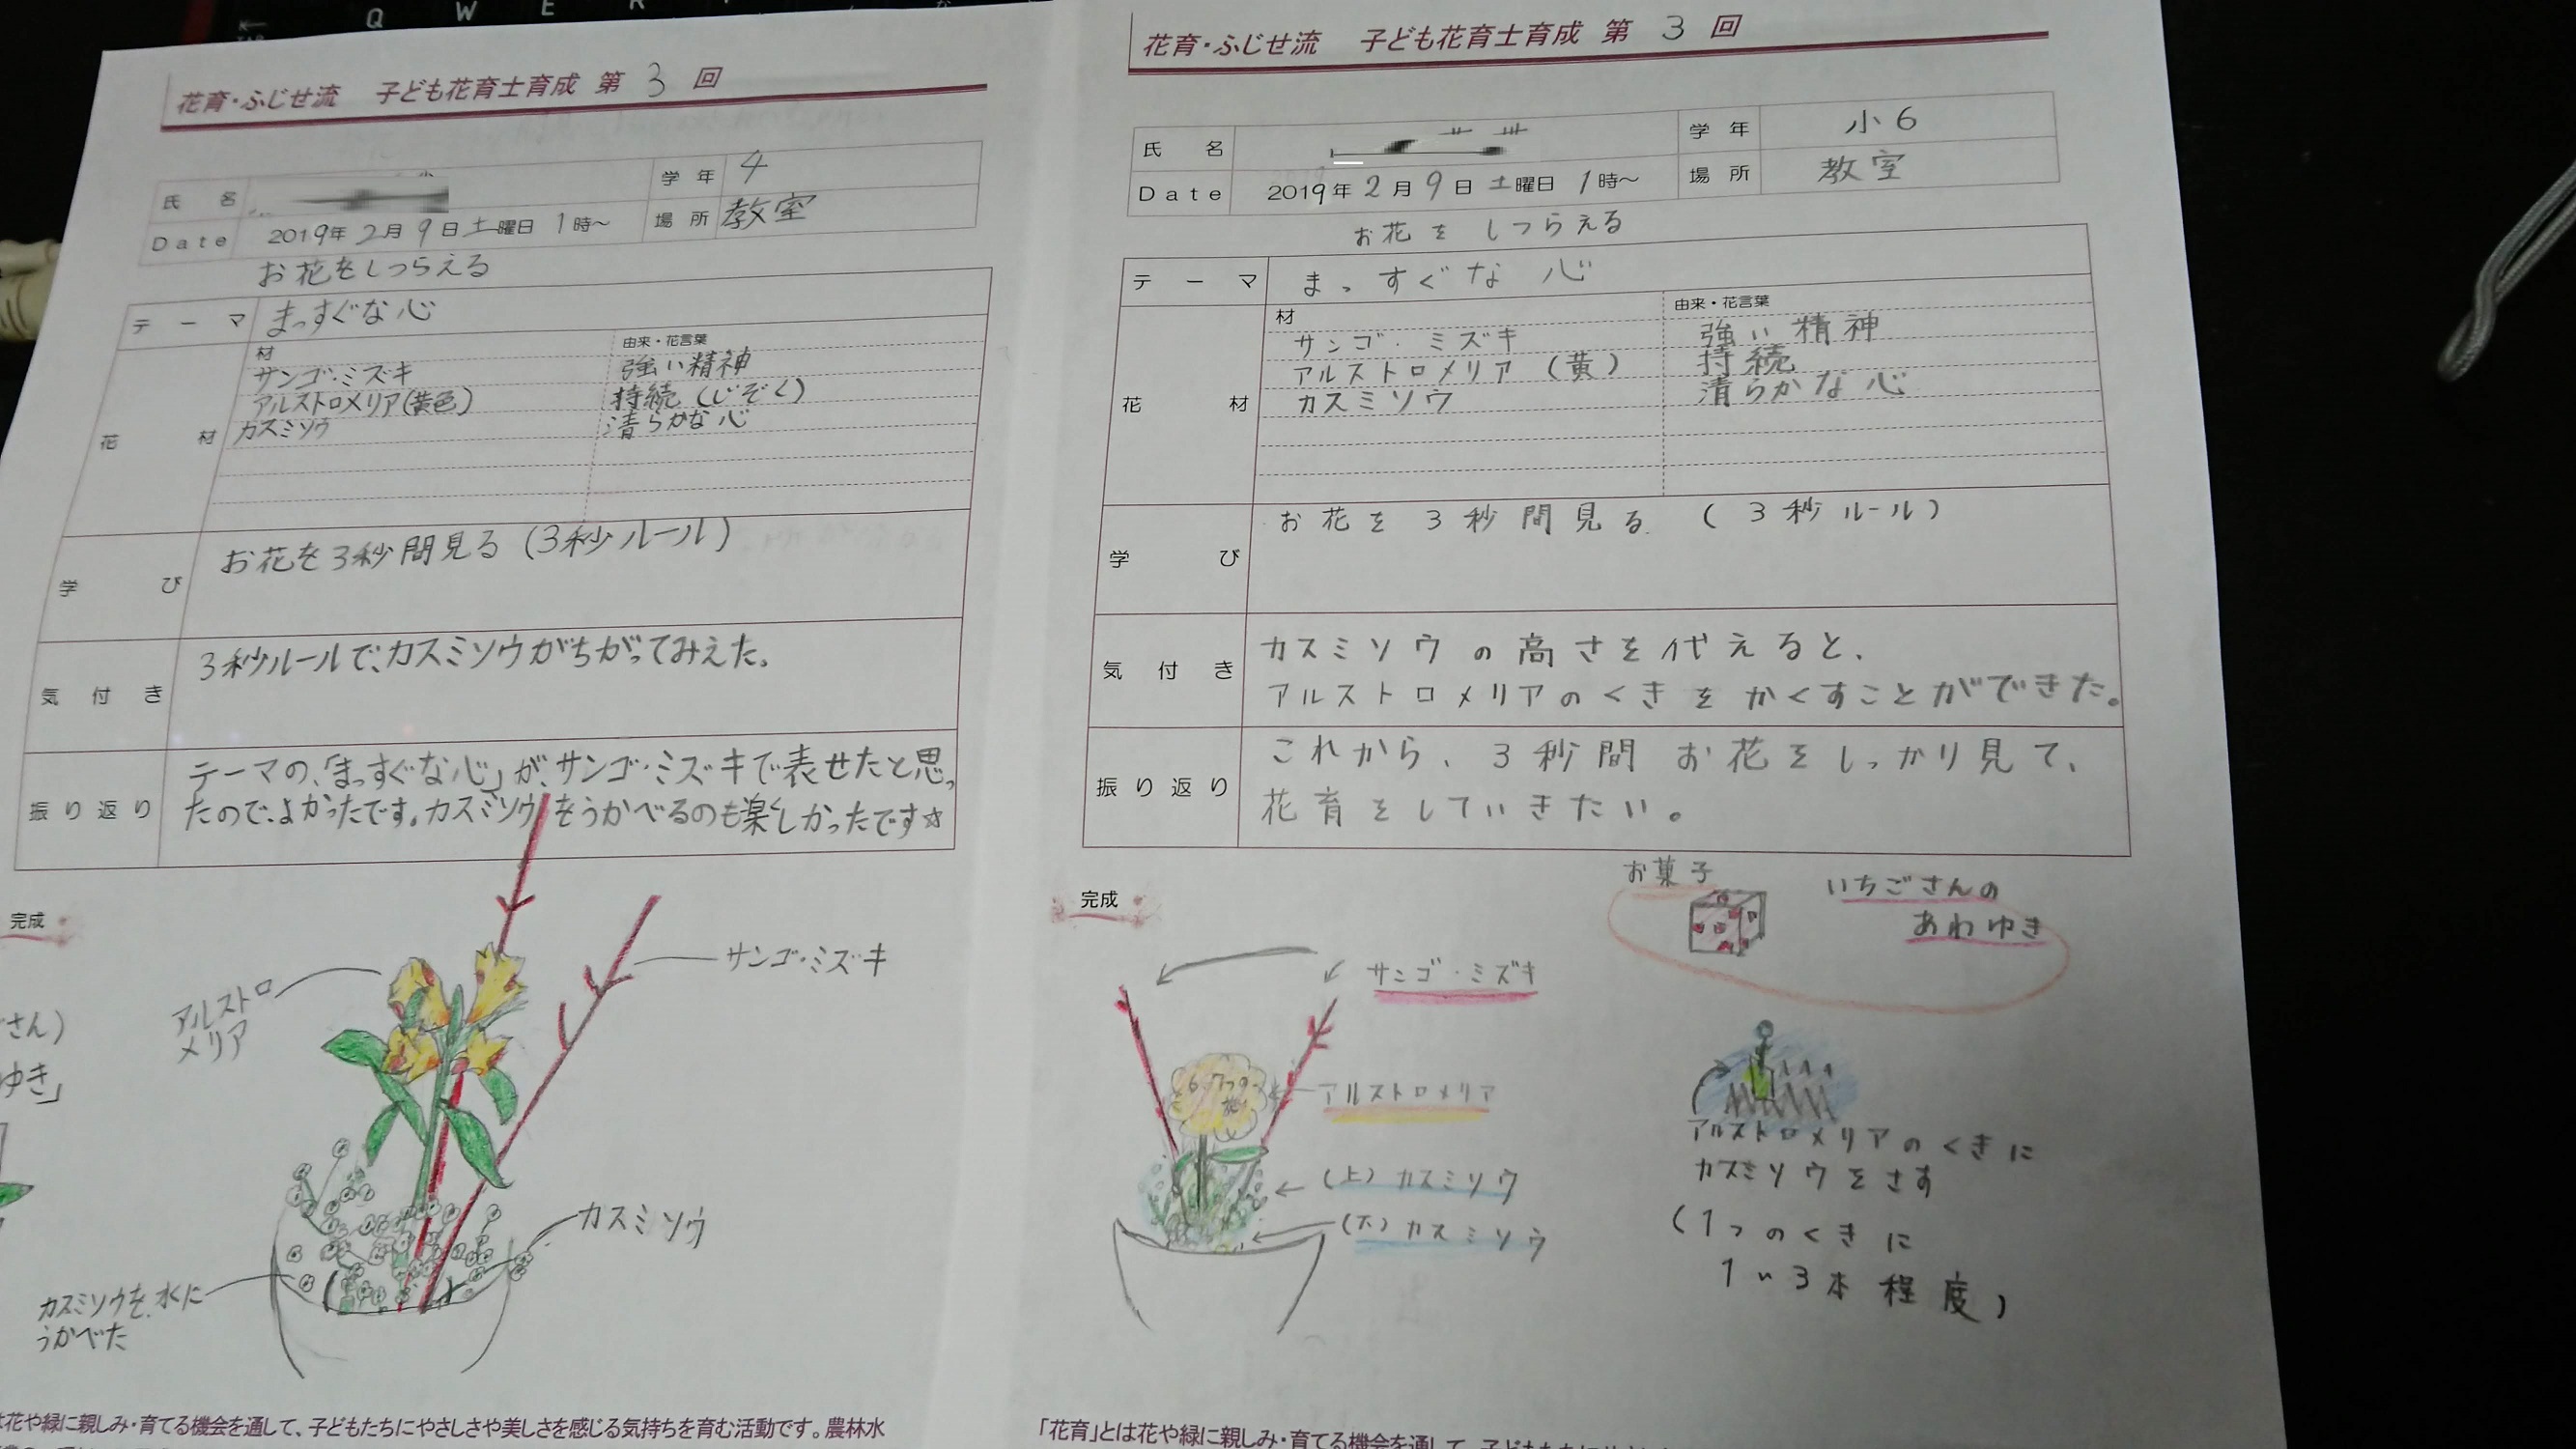 Q W E R
花育・ふじせ流 子ども花育士育成 第 3 回
氏名
学年 4
Date 2019年 2月 9日 土曜日 1時～
場所 教室
お花をしつらえる
テーマ まっすぐな心
花材
材 由来・花言葉
サンゴ・ミズキ 強い精神
アルストロメリア(黄色) 持続(じぞく)
カスミソウ 清らかな心
学び お花を3秒間見る(3秒ルール)
気付き 3秒ルールで、カスミソウがちがってみえた。
振り返り テーマの、「まっすぐな心」が、サンゴ・ミズキで表せたと思っ
たので、よかったです。カスミソウをうかべるのも楽しかったです☆
完成
さん)
ゆき」
アルストロ
メリア
サンゴ・ミズキ
カスミソウ
カスミソウを、水に
うかべた
花や緑に親しみ・育てる機会を通して、子どもたちにやさしさや美しさを感じる気持ちを育む活動です。農林水
花育・ふじせ流 子ども花育士育成 第 3 回
氏名
学年 小6
Date 2019年 2月 9日 土曜日 1時～
場所 教室
お花をしつらえる
テーマ まっすぐな心
花材
材 由来・花言葉
サンゴ・ミズキ 強い精神
アルストロメリア(黄) 持続
カスミソウ 清らかな心
学び お花を3秒間見る (3秒ルール)
気付き カスミソウの高さを代えると、
アルストロメリアのくきをかくすことができた。
振り返り これから、3秒間お花をしっかり見て、
花育をしていきたい。
完成
お菓子
いちごさんの
あわゆき
サンゴ・ミズキ
アルストロメリア
(上)カスミソウ
(下)カスミソウ
アルストロメリアのくきに
カスミソウをさす
(1つのくきに
1～3本程度)
「花育」とは花や緑に親しみ・育てる機会を通して、子どもたちに